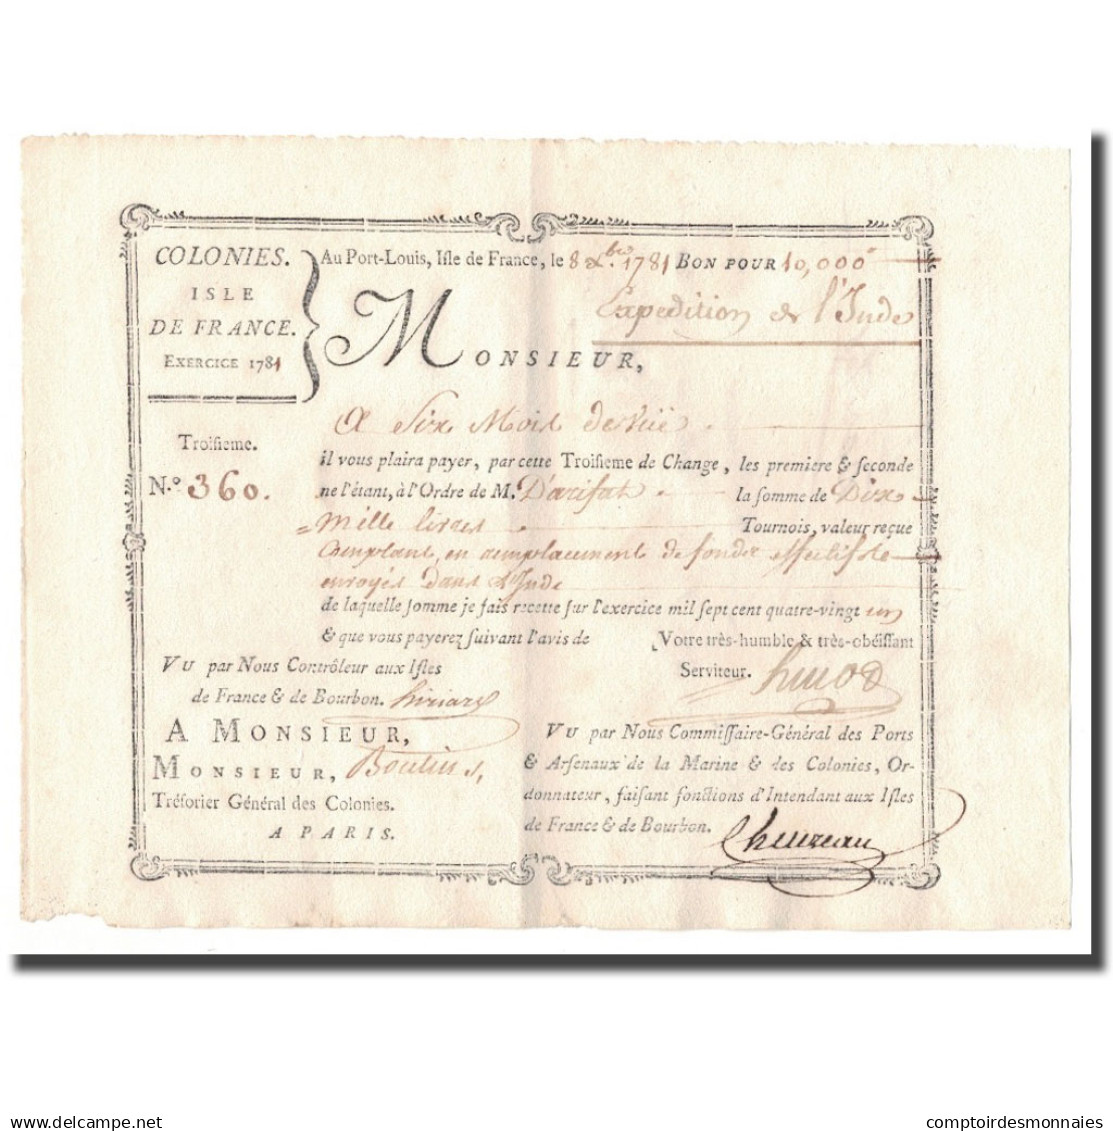 COLONIES.
ISLE
DE FRANCE.
EXERCICE 1781
Au Port-Louis, Isle de France, le 8 Xbre. 1781 BON POUR 10,000
Expedition de l'Inde
MONSIEUR,
Troisieme.
N.º 360.
A Six Mois de vüe
il vous plaira payer, par cette Troisieme de Change, les premiere & seconde
ne l'étant, à l'Ordre de M. D'arifat la somme de Dix
mille livres Tournois, valeur reçue
Comptant, en remplacement de fonds effectifs
envoyés dans L'Inde
de laquelle somme je fais recette sur l'exercice mil sept cent quatre-vingt un
& que vous payerez suivant l'avis de Votre très-humble & très-obéissant
Serviteur.
VU par Nous Contrôleur aux Isles
de France & de Bourbon.
A MONSIEUR,
MONSIEUR, Boutin
Trésorier Général des Colonies.
A PARIS.
VU par Nous Commissaire-Général des Ports
& Arsenaux de la Marine & des Colonies, Or-
donnateur, faisant fonctions d'Intendant aux Isles
de France & de Bourbon. Chevreau
Delcampe.net
comptoirdesmonnaies